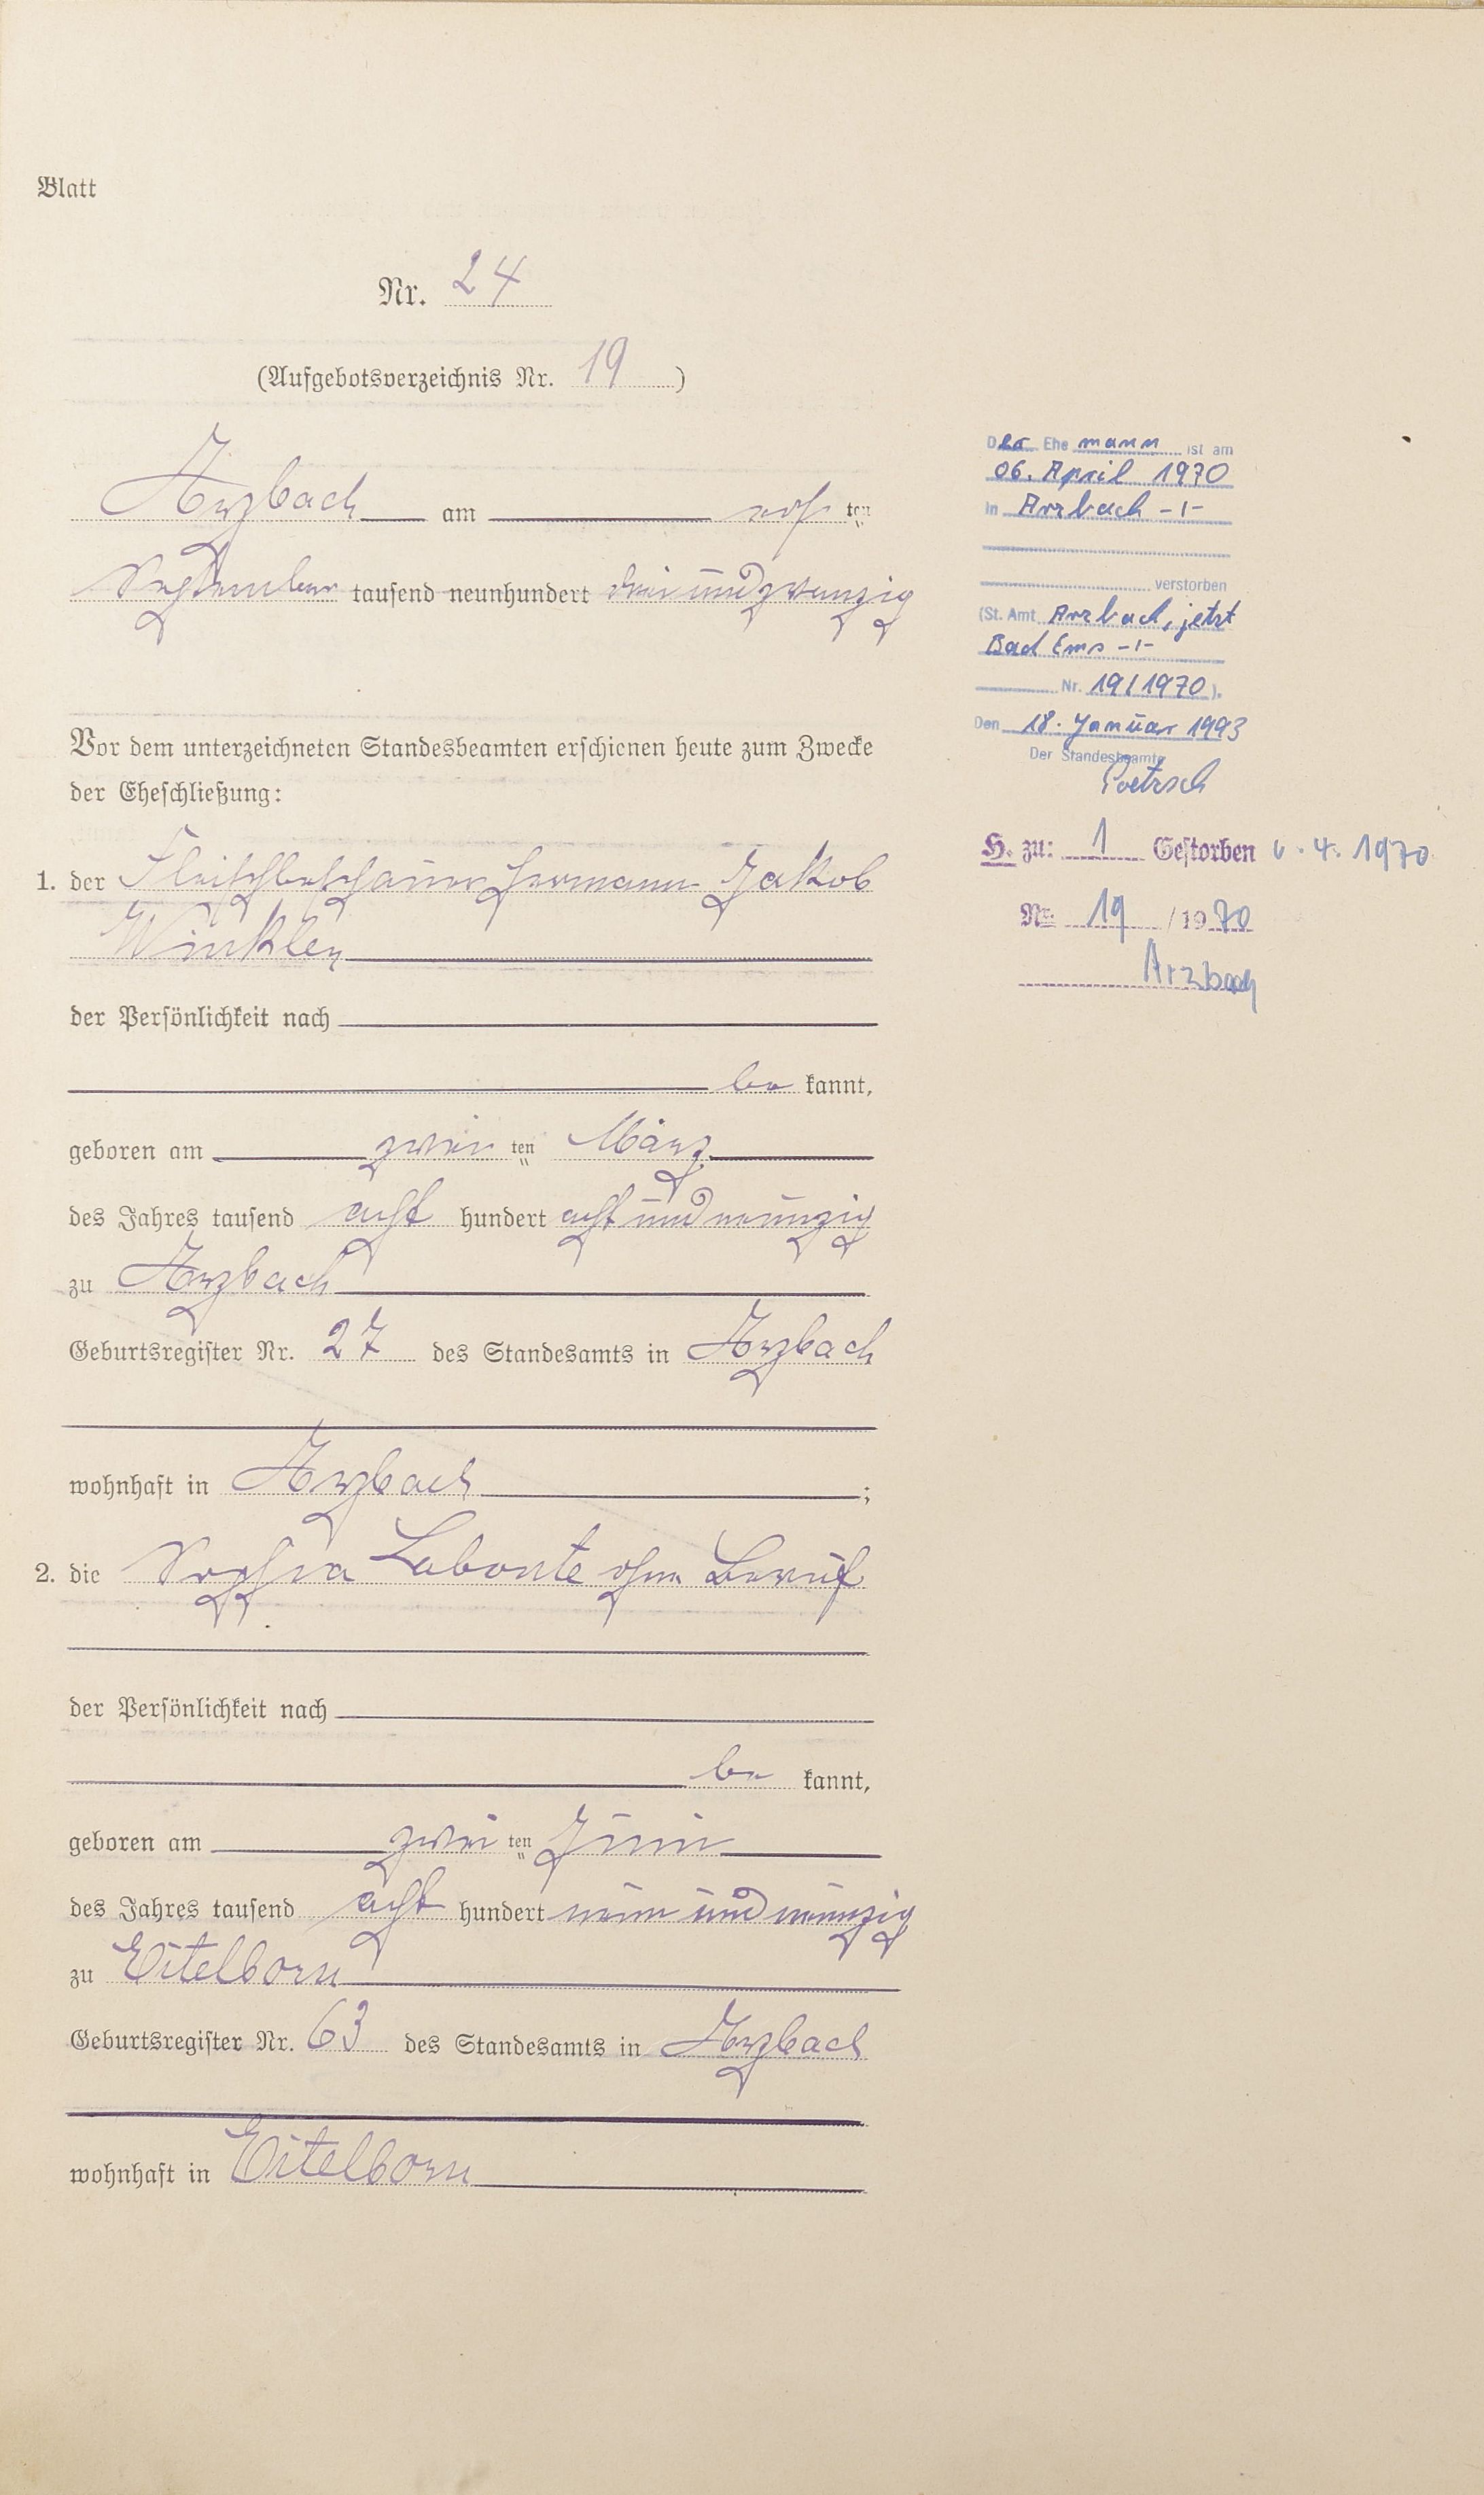 Blatt
Nr. 24
(Aufgebotsverzeichnis Nr. 19)
Arzbach am ersten
September tausend neunhundert drei und zwanzig
Vor dem unterzeichneten Standesbeamten erschienen heute zum Zwecke
der Eheschließung:
1. der Fleischbeschauer Hermann Jakob
Winkler
der Persönlichkeit nach
be kannt,
geboren am zwei ten März
des Jahres tausend acht hundert acht und neunzig
zu Arzbach
Geburtsregister Nr. 27 des Standesamts in Arzbach
wohnhaft in Arzbach;
2. die Sophia Labonte ohne Beruf
der Persönlichkeit nach
be kannt,
geboren am zwei ten Juni
des Jahres tausend acht hundert neun und neunzig
zu Eitelborn
Geburtsregister Nr. 63 des Standesamts in Arzbach
wohnhaft in Eitelborn
Der Ehemann ist am
06. April 1970
in Arzbach -/-
verstorben
(St. Amt Arzbach, jetzt
Bad Ems -/-
Nr. 19/1970).
Den 18. Januar 1993
Der Standesbeamte
Poetzsch
H. zu: 1 Gestorben 6. 4. 1970
Nr. 19 / 1970
Arzbach